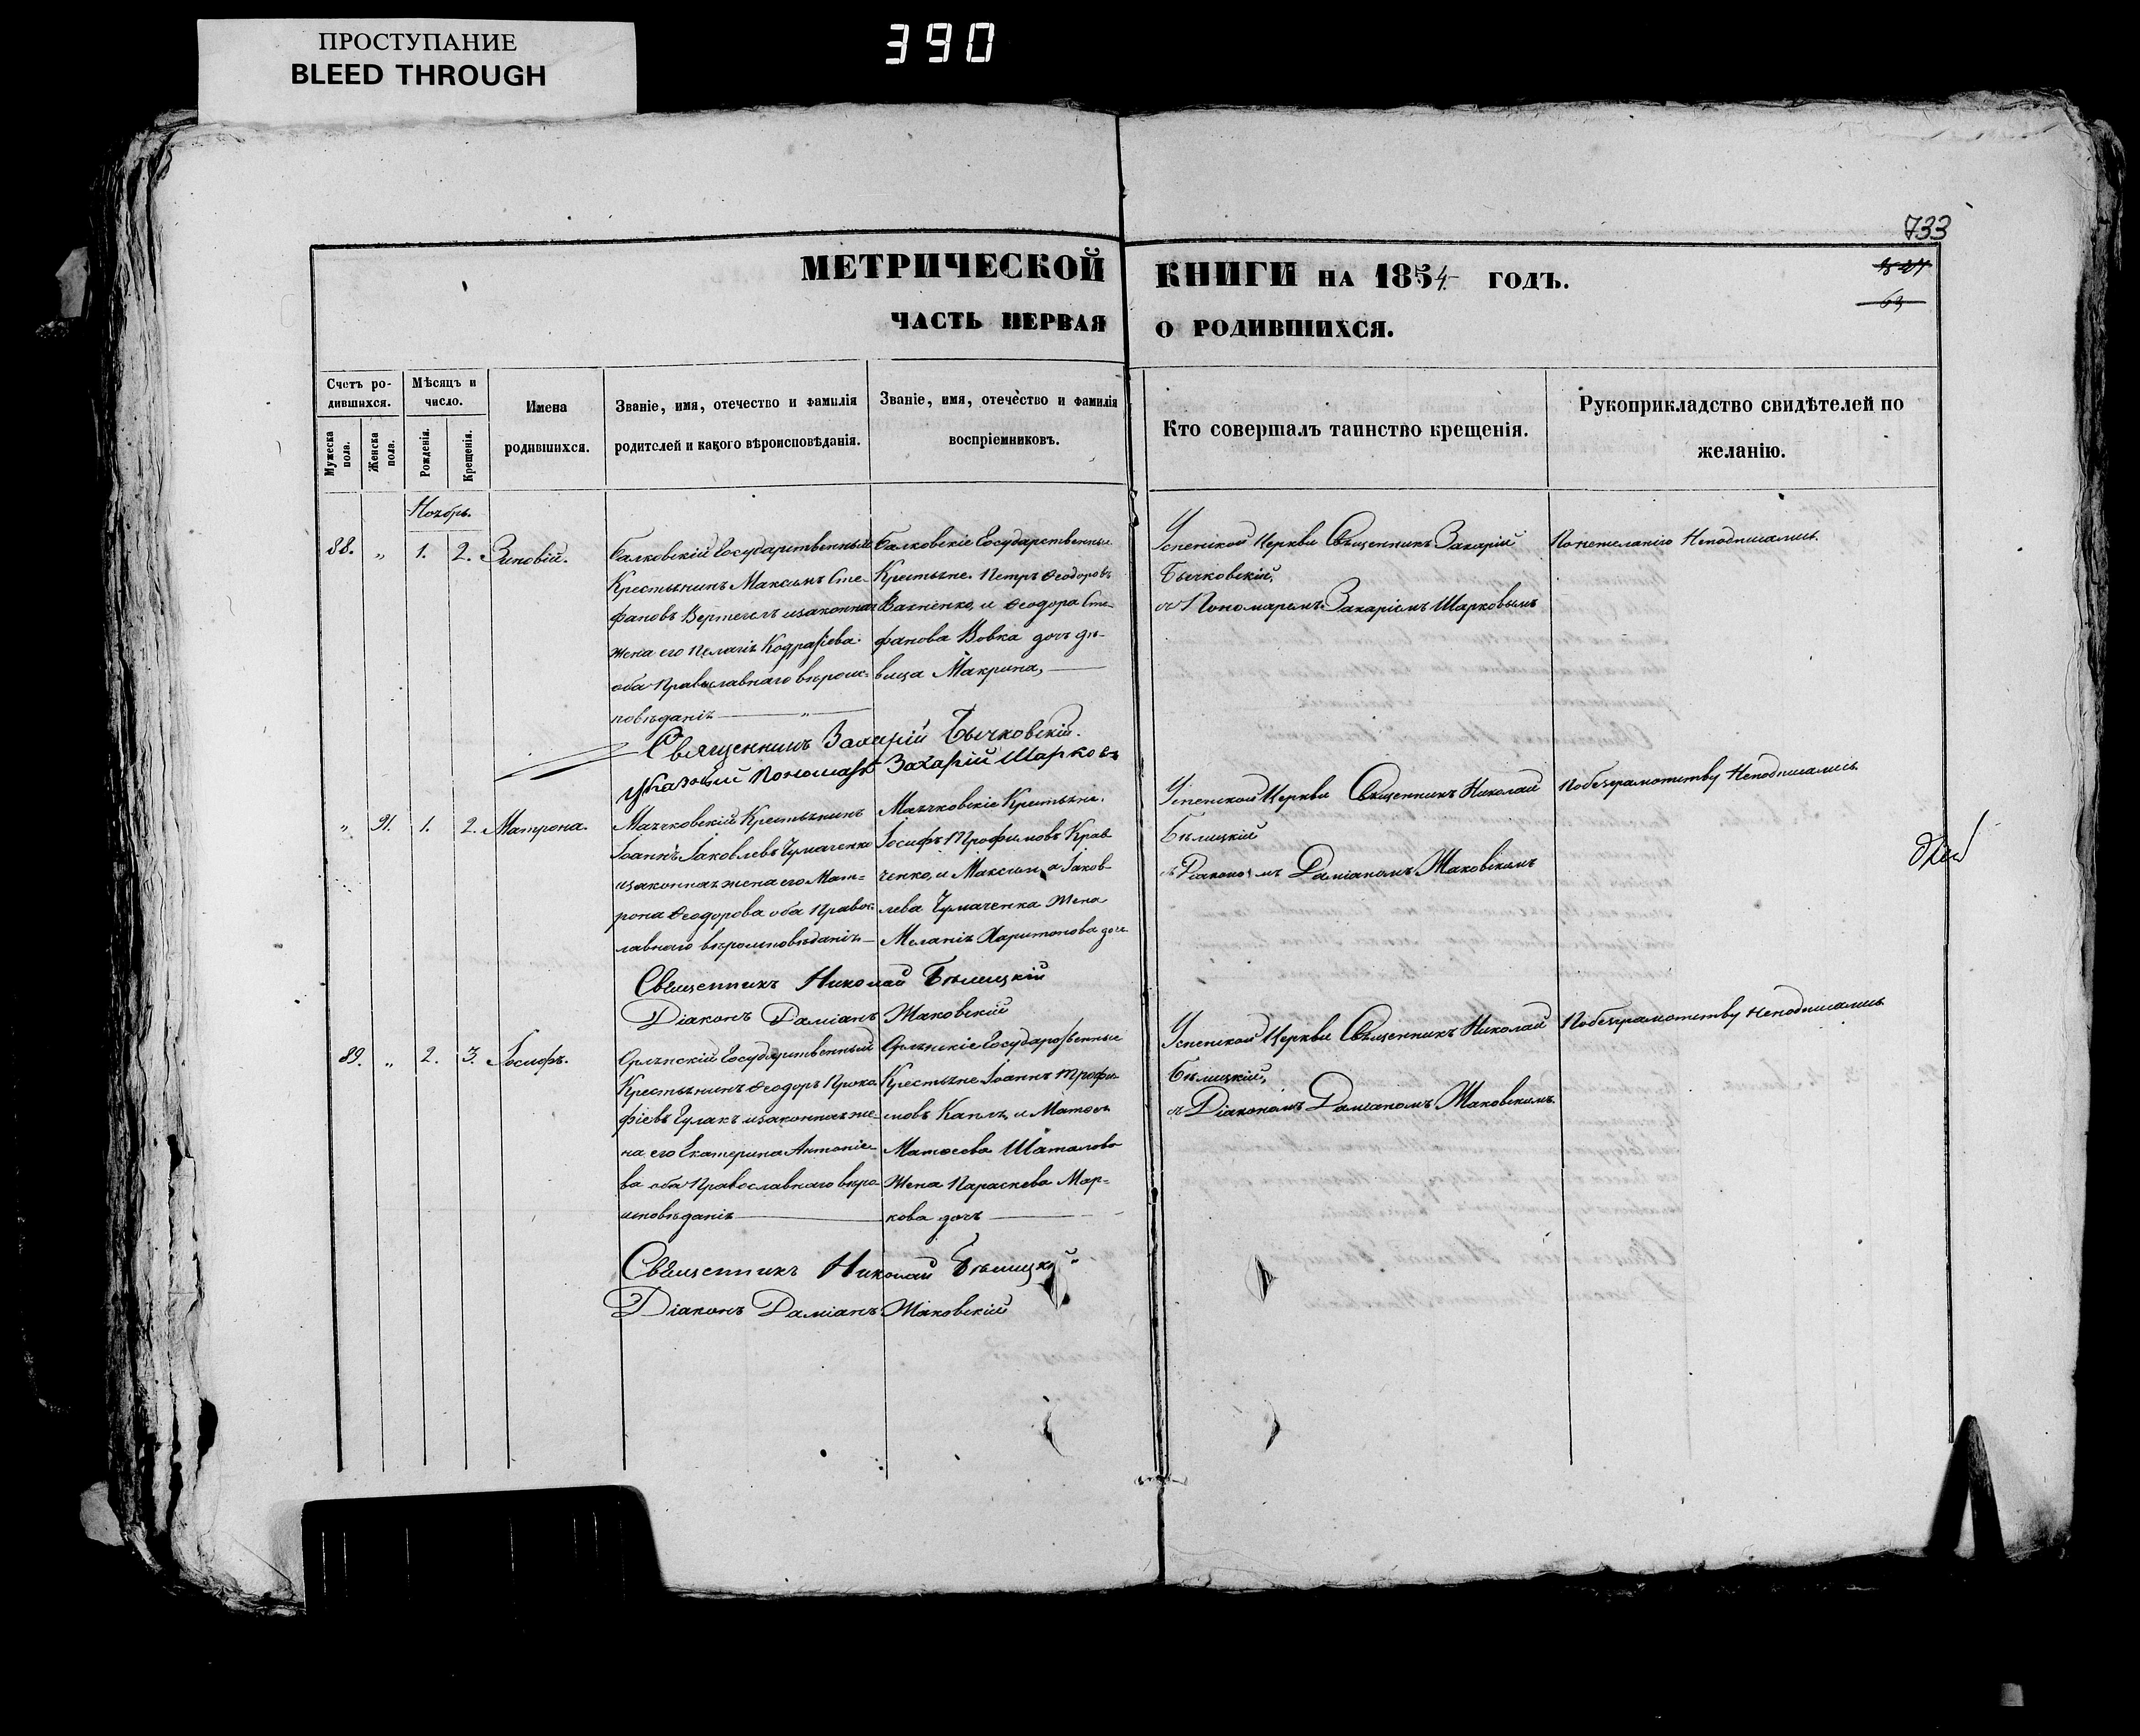 ПРОСТУПАНИЕ
BLEED THROUGH
390
733
МЕТРИЧЕСКОЙ КНИГИ НА 1854 ГОДЪ.
63
ЧАСТЬ ПЕРВАЯ О РОДИВШИХСЯ.
Счетъ ро-
дившихся.
Мужеска пола.
Женска пола.
Мѣсяцъ и
число.
Рожденія.
Крещенія.
Имена
родившихся.
Званіе, имя, отечество и фамилія
родителей и какого вѣроисповѣданія.
Званіе, имя, отечество и фамилія
воспріемниковъ.
Кто совершалъ таинство крещенія.
Рукоприкладство свидѣтелей по
желанію.
Ноябрь.
88. „ 1. 2. Зиновій.
Балковскій Государственный
Крестьянинъ Максимъ Сте-
фановъ Вертегелъ изаконная
жена его Пелагія Кодрафіева
оба Православнаго вѣроис-
повѣданія
Балковскіе Государственные
Крестьяне. Петръ Ѳеодоровъ
Вакненко, и Ѳеодора Сте-
фанова Вовка дочь дѣ-
вица Макрина,
Успенской Церкви Священникъ Захарій
Бычковскій,
съ Пономаремъ Захаріемъ Шарковымъ
Понежеланію Неподписались.
Священникъ Захарій Бычковскій.
Указный Пономарь Захарій Шарковъ
„ 91. 1. 2. Матрона.
Маячковскій Крестьянинъ
Іоаннъ Іаковлевъ Чумаченко
изаконная жена его Мат-
рона Ѳеодорова оба Правос-
лавнаго вѣроисповѣданія
Маячковскіе Крестьяне.
Іосифъ Трофимовъ Крав
ченко, и Максима Іаков-
лева Чумаченка Жена
Меланія Харитонова дочь
Успенской Церкви Священникъ Николай
Бѣлицкій
съ Діакономъ Даміаномъ Жаковскимъ
Побезграмотству Неподписались.
Священникъ Николай Бѣлицкій
Діаконъ Даміанъ Жаковскій
89. „ 2. 3. Іосифъ.
Орлянскій Государственный
Крестьянинъ Ѳеодоръ Проко
фіевъ Гулакъ изаконная же
на его Екатерина Антоніе
ва оба Православнаго вѣро
исповѣданія
Орлянскіе Государственные
Крестьяне Іоаннъ Трофи-
мовъ Капля, и Матѳея
Матѳеева Шаталова
Жена Параскева Мар-
кова дочь
Успенской Церкви Священникъ Николай
Бѣлицкій,
съ Діакономъ Даміаномъ Жаковскимъ.
Побезграмотству Неподписались
Священникъ Николай Бѣлицкій
Діаконъ Даміанъ Жаковскій